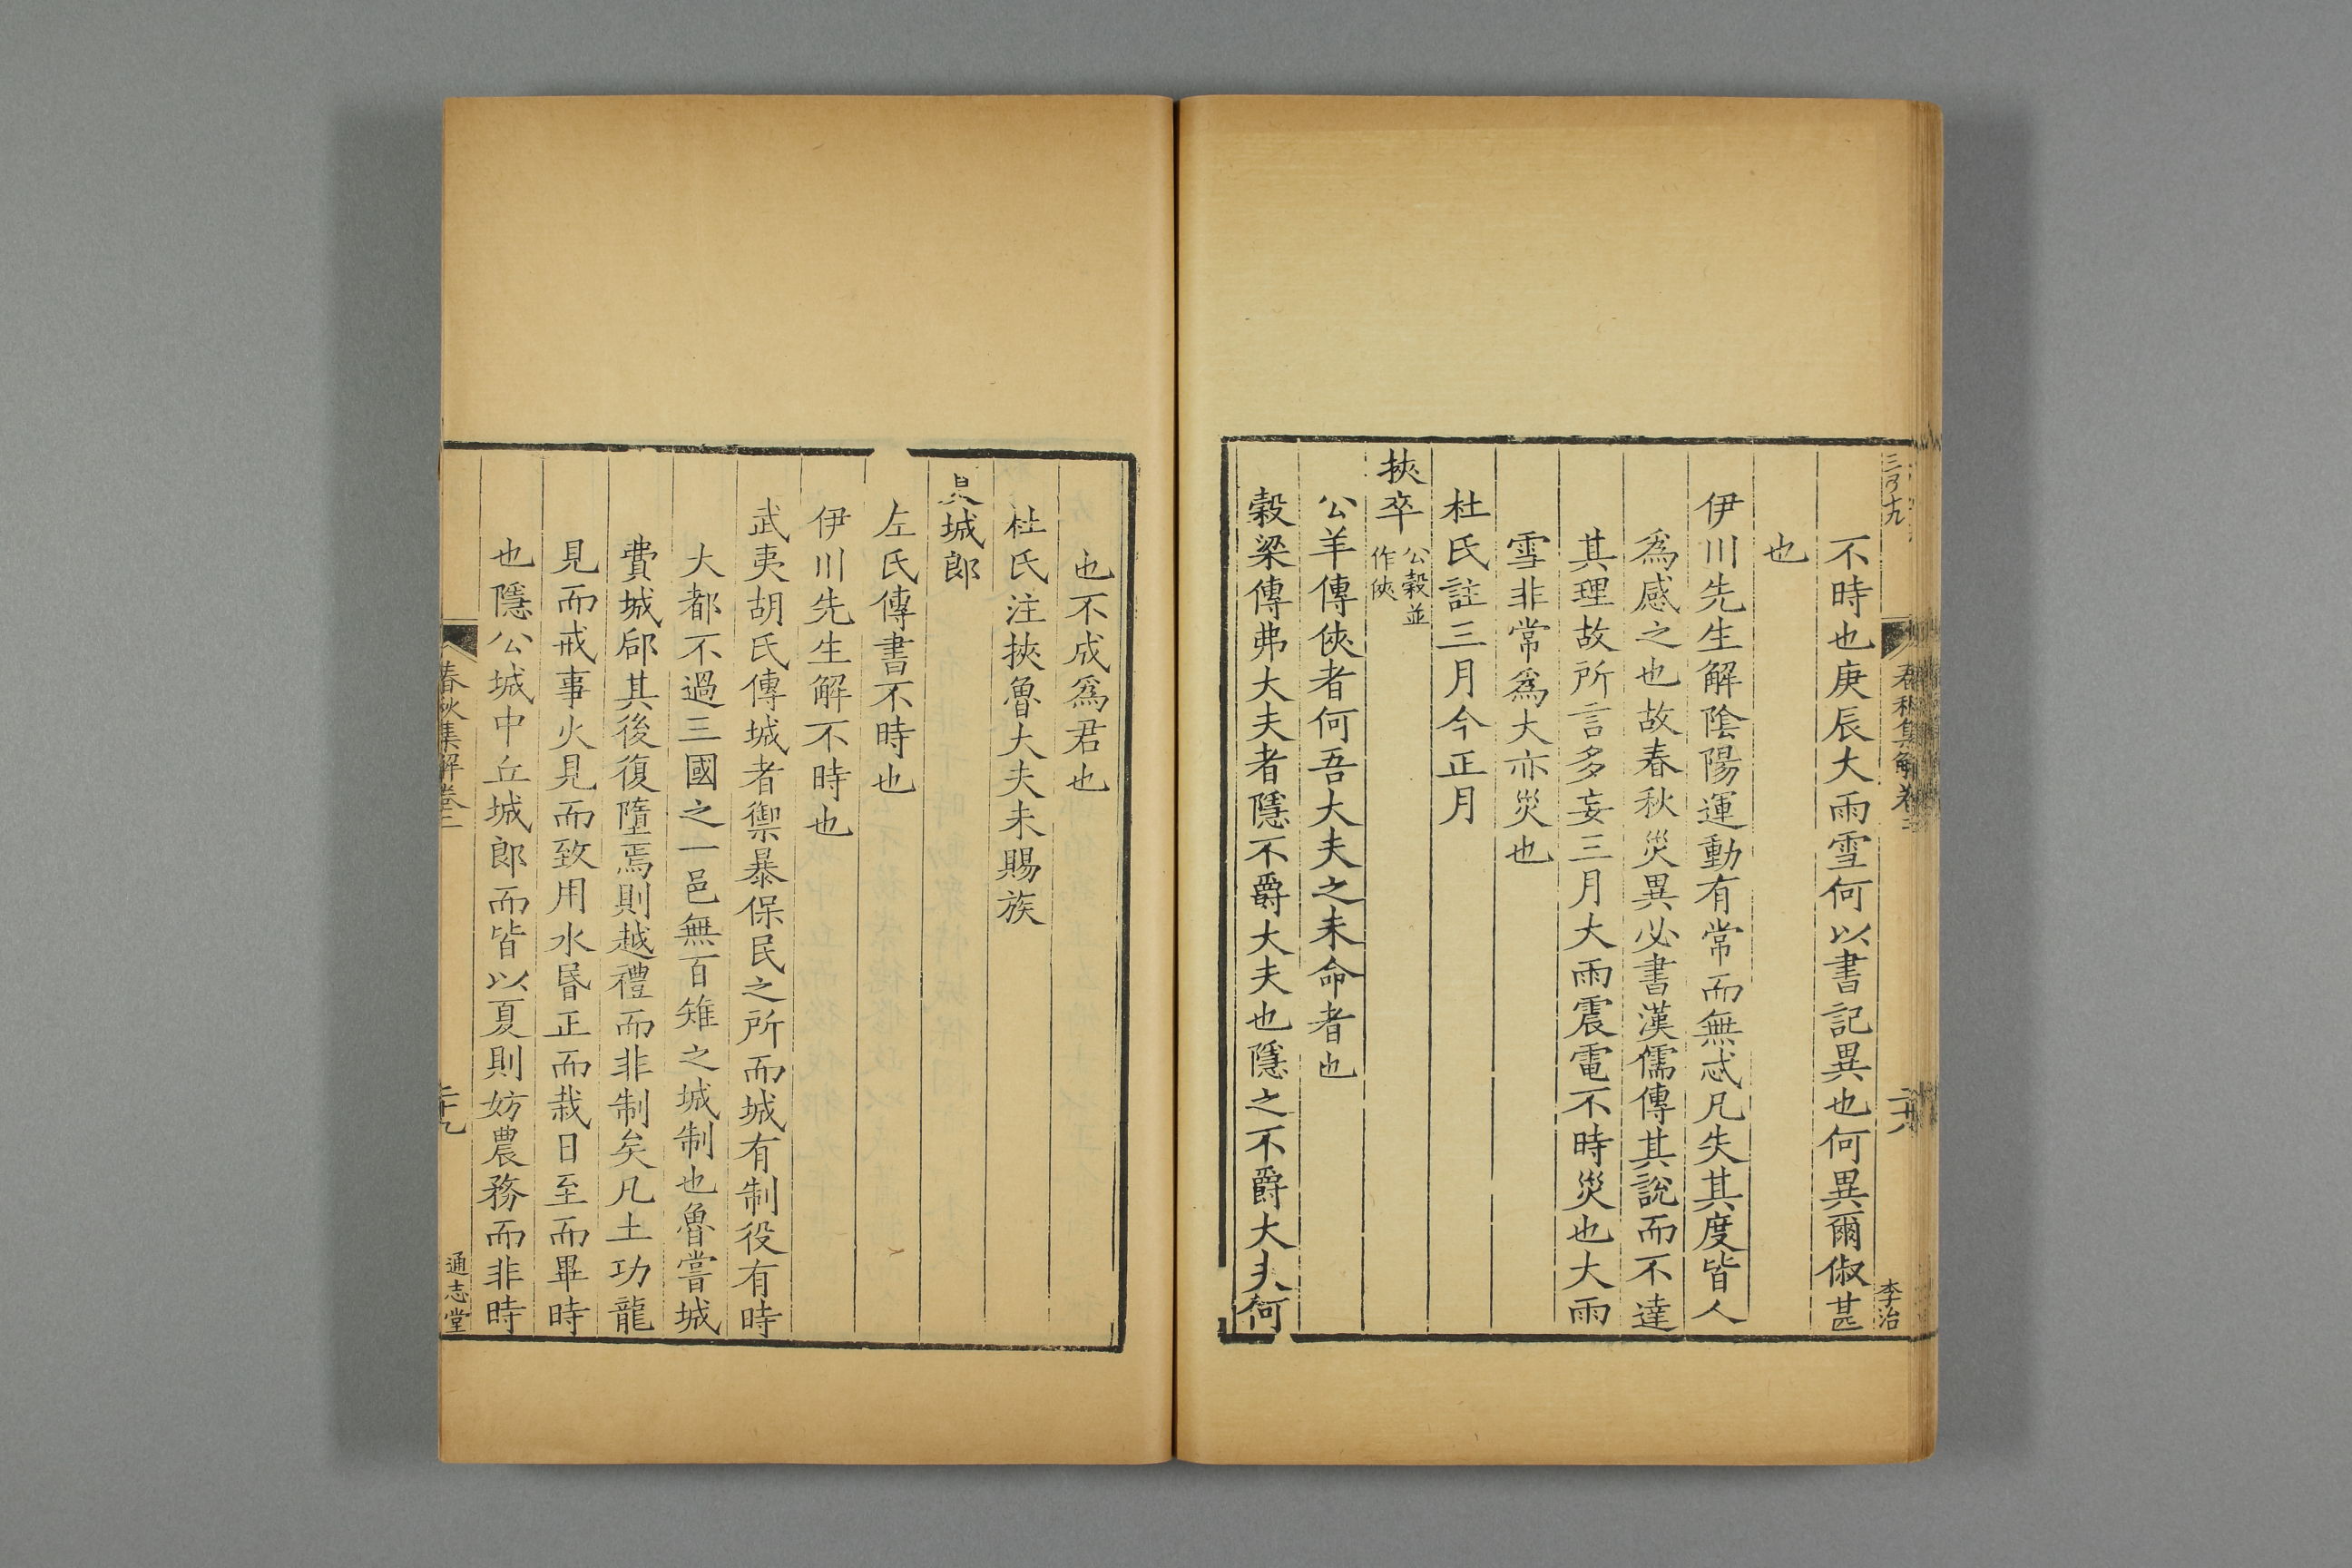 不時也庚辰大雨雪何以書記異也何異爾俶甚
也
伊川先生解陰陽運動有常而無忒凡失其度皆人
爲感之也故春秋災異必書漢儒傳其說而不達
其理故所言多妄三月大雨震電不時災也大雨
雪非常爲大亦災也
杜氏註三月今正月
挾卒公穀並
作俠
公羊傳俠者何吾大夫之未命者也
穀梁傳弗大夫者隱不爵大夫也隱之不爵大夫何
春秋集解卷二
李治
也不成爲君也
杜氏注挾魯大夫未賜族
夏城郎
左氏傳書不時也
伊川先生解不時也
武夷胡氏傳城者禦暴保民之所而城有制役有時
大都不過三國之一邑無百雉之城制也魯嘗城
費城郈其後復墮焉則越禮而非制矣凡土功龍
見而戒事火見而致用水昏正而栽日至而畢時
也隱公城中丘城郎而皆以夏則妨農務而非時
春秋集解卷二
二十九
通志堂